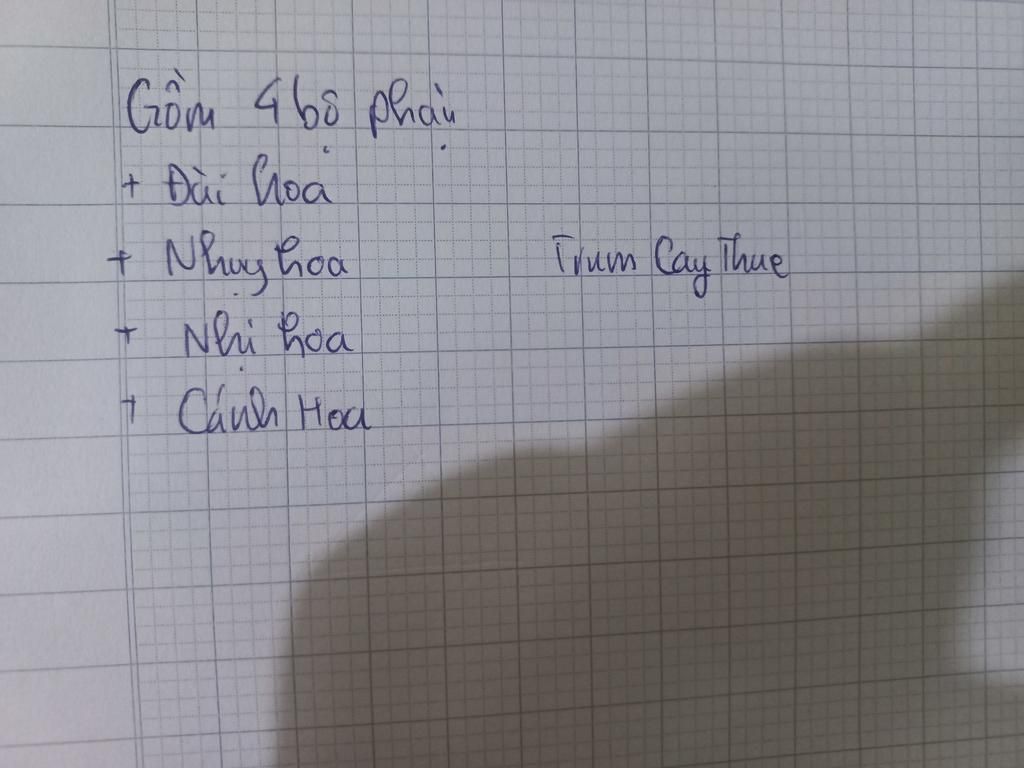 Gồm 4 bộ phận
+ Đài hoa
+ Nhụy hoa
Trum Cay Thue
+ Nhị hoa
+ Cánh Hoa